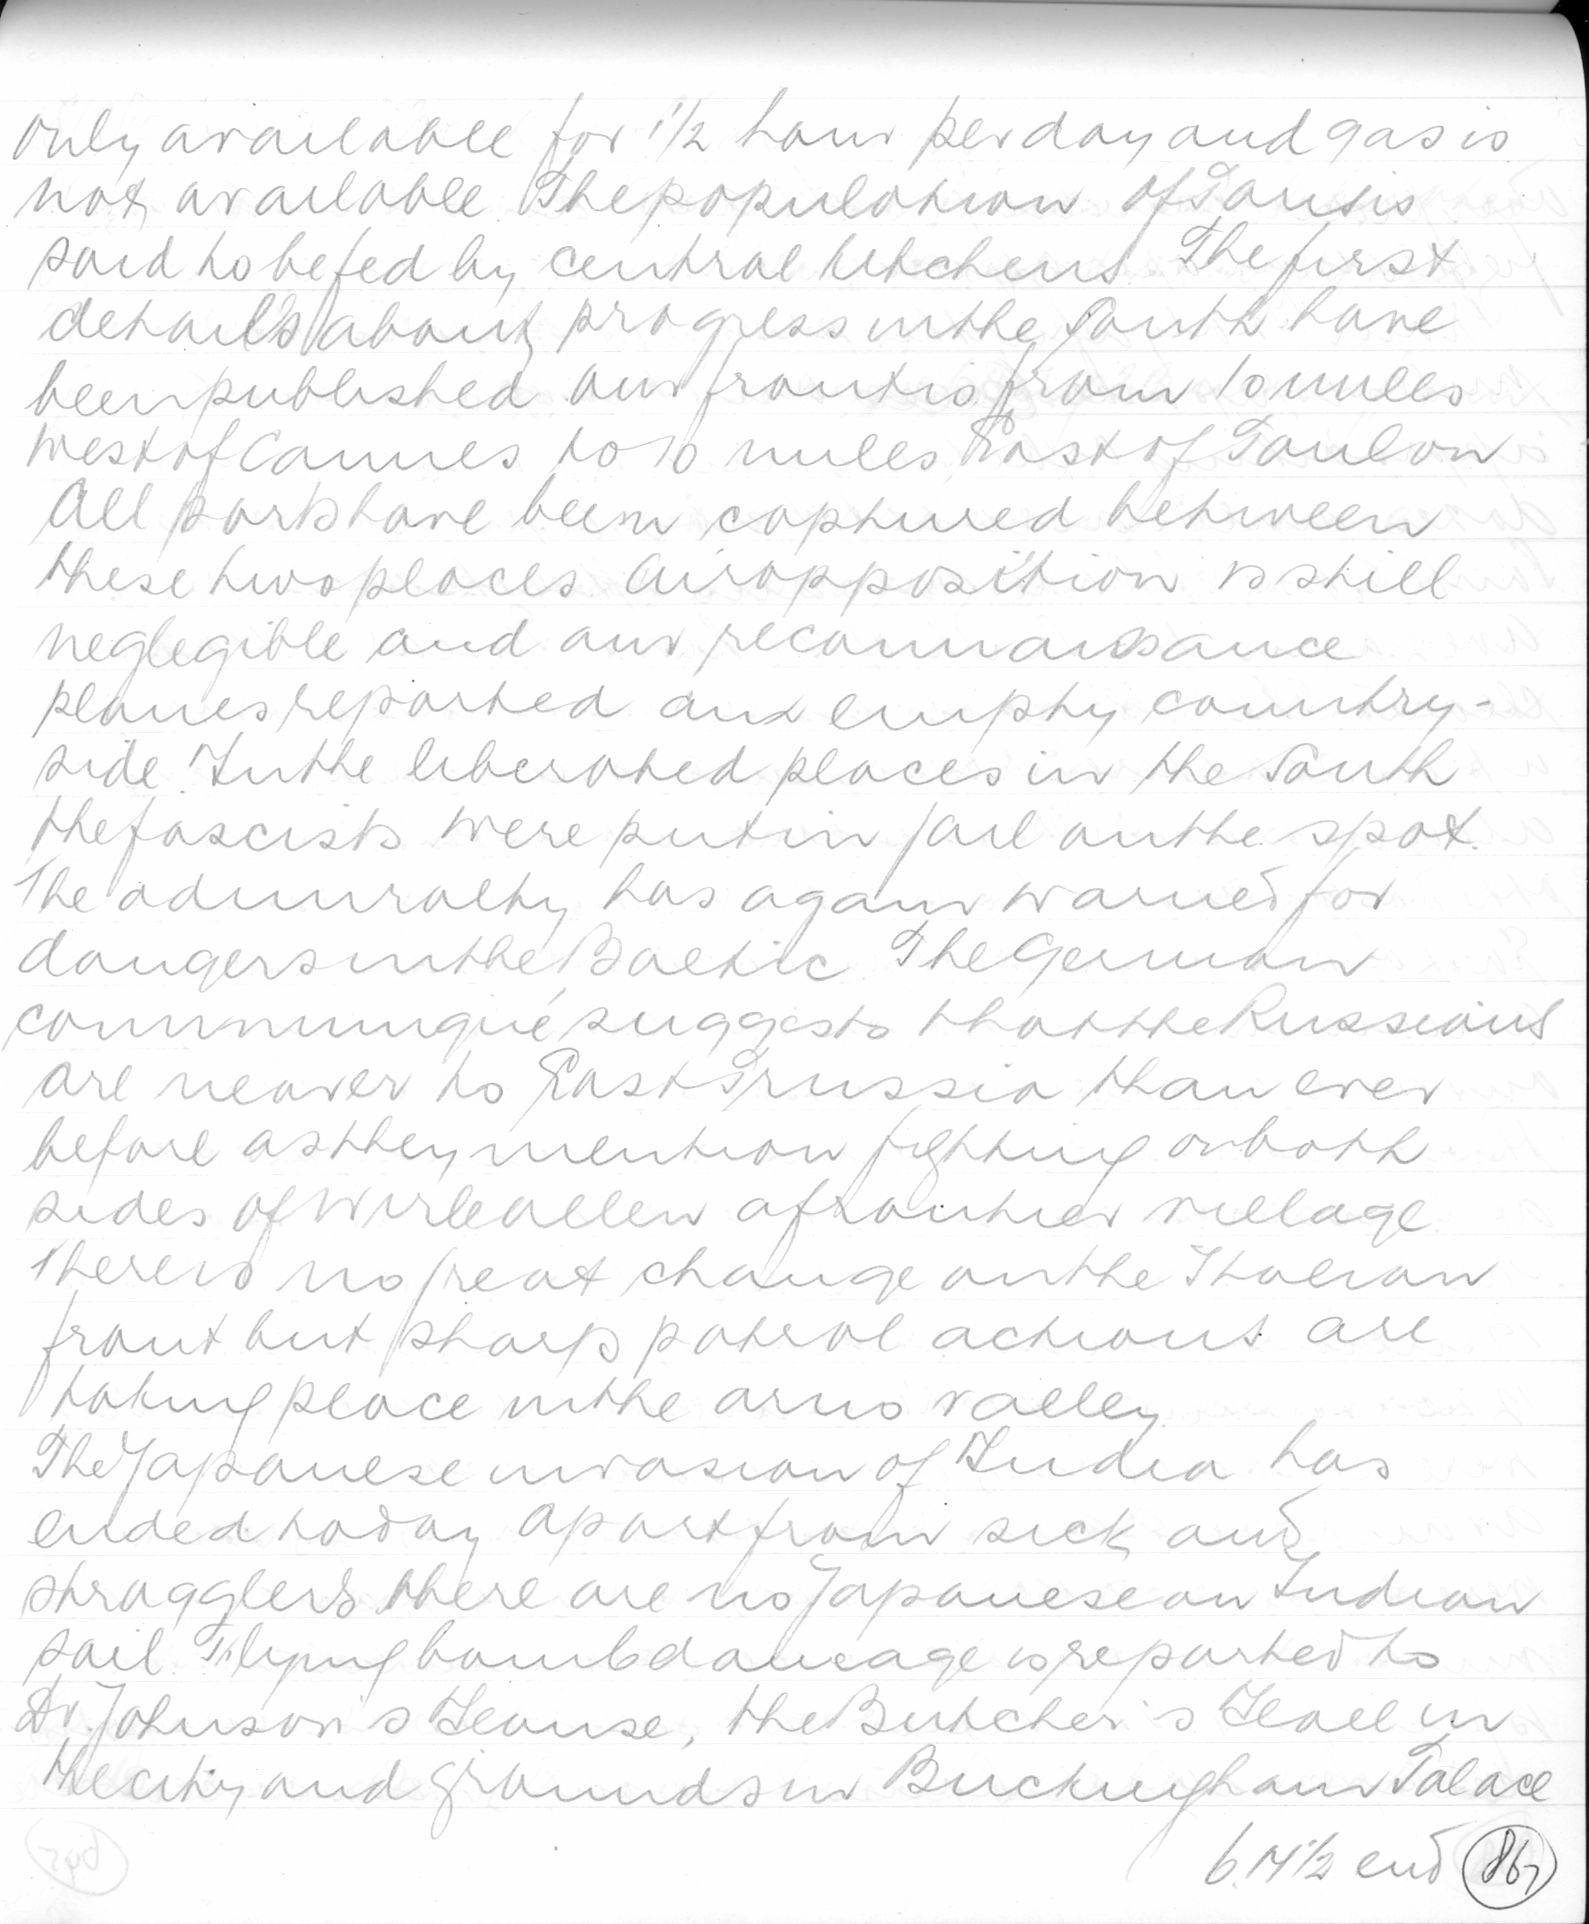 only available for 1/2 hour per day and gas is
not available. The population of Paris is
said to be fed by central kitchens. The first
details about progress in the South have
been published our front is from 10 miles
west of Cannes to 10 miles East of Toulon
All ports have been captured between
these two places. Air opposition is still
neglegible and our reconnaissance
planes reported an empty country-
side. In the liberated places in the South
the fascists were put in jail on the spot.
The admiralty has again warned for
dangers in the Baltic. The German
communiqué suggests that the Russians
are nearer to East Prussia than ever
before as they mention fighting on both
sides of Wirballen a frontier village.
There is no great change on the Italian
front but sharp patrol actions are
taking place in the arno valley.
The Japanese invasion of India has
ended today apart from sick and
stragglers there are no Japanese on Indian
soil. Flying bomb damage is reported to
Dr. Johnson's House, the Butcher's Hall in
the city and grounds in Buckingham Palace
6.14 1/2 end 867